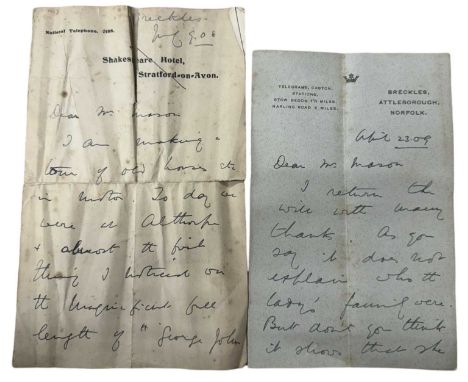 National Telephone, 2198.
Breckles.
Shakespeare Hotel,
Stratford-on-Avon.
Dear Mr Mason
I am making a
tour of old houses etc
in motor. To day we
were at Althorpe
& almost the first
thing I noticed was
the magnificent full
length of "George John
TELEGRAMS, CASTON.
STATIONS,
STOW BEDON 1¾ MILES.
HARLING ROAD 6 MILES.
BRECKLES,
ATTLEBOROUGH,
NORFOLK.
April 23.09
Dear Mr Mason
I return the
will with many
thanks. As you
say it does not
explain who the
lady's family were.
But don't you think
it shows that she